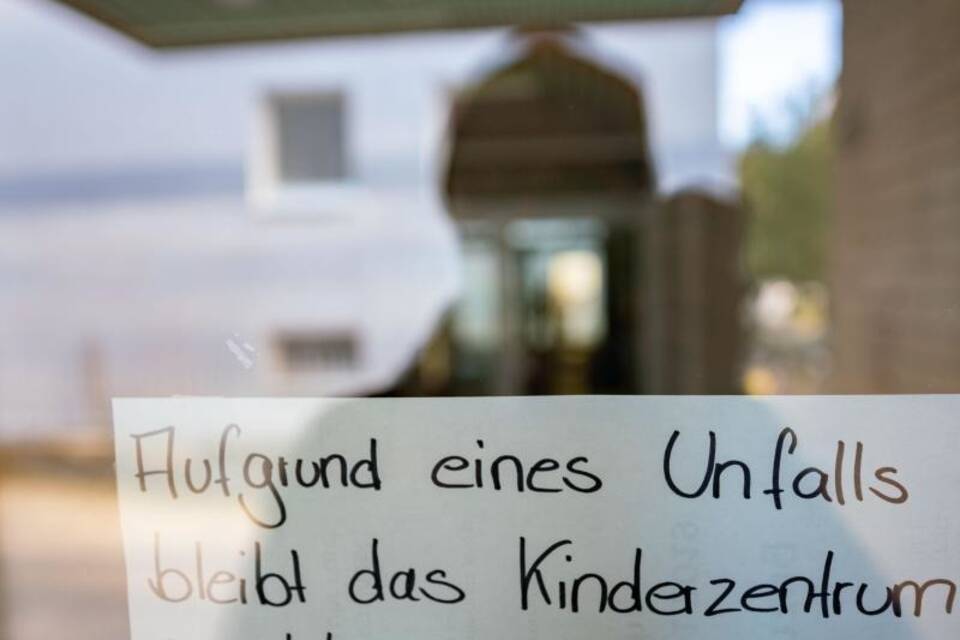 Aufgrund eines Unfalls
bleibt das Kinderzentrum